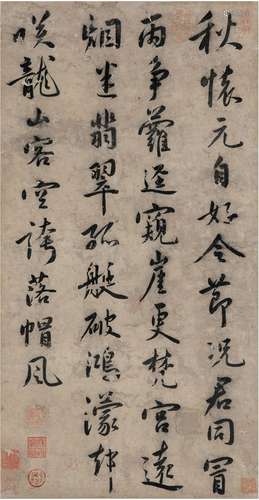 秋懷元自好令節況君同冒
雨爭蘿逕窺崖更梵宮遠
烟迷翡翠孤艇破鴻濛却
咲龍山客空誇落帽風